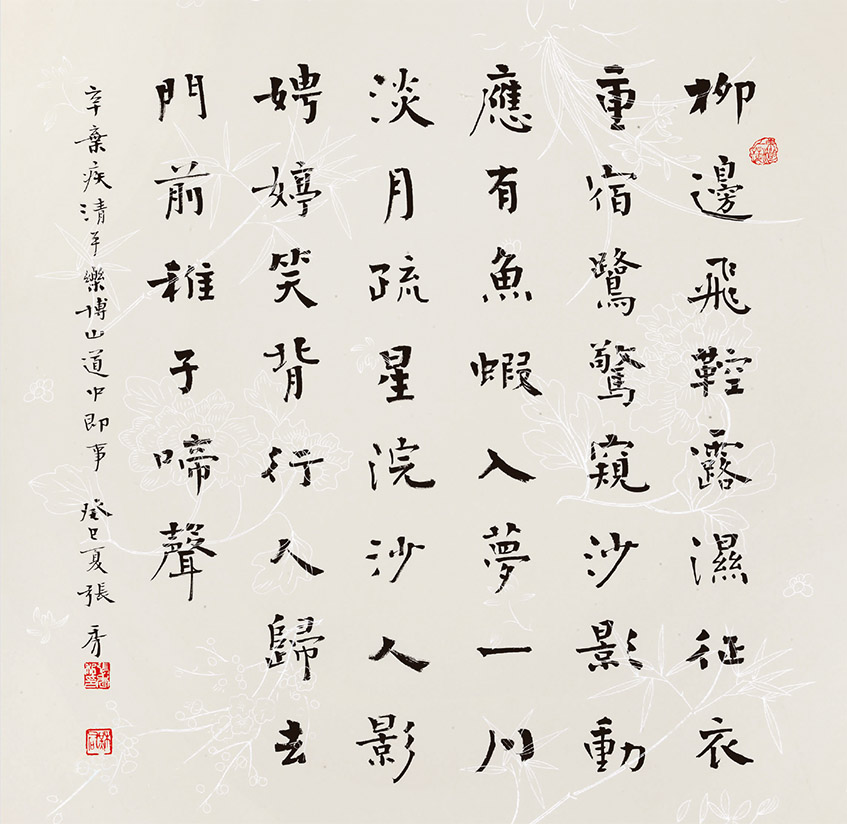 柳邊飛鞚露濕征衣
重宿鷺驚窺沙影動
應有魚蝦入夢一川
淡月疏星浣沙人影
娉婷笑背行人歸去
門前稚子啼聲
辛棄疾清平樂博山道中即事 癸巳夏張秀